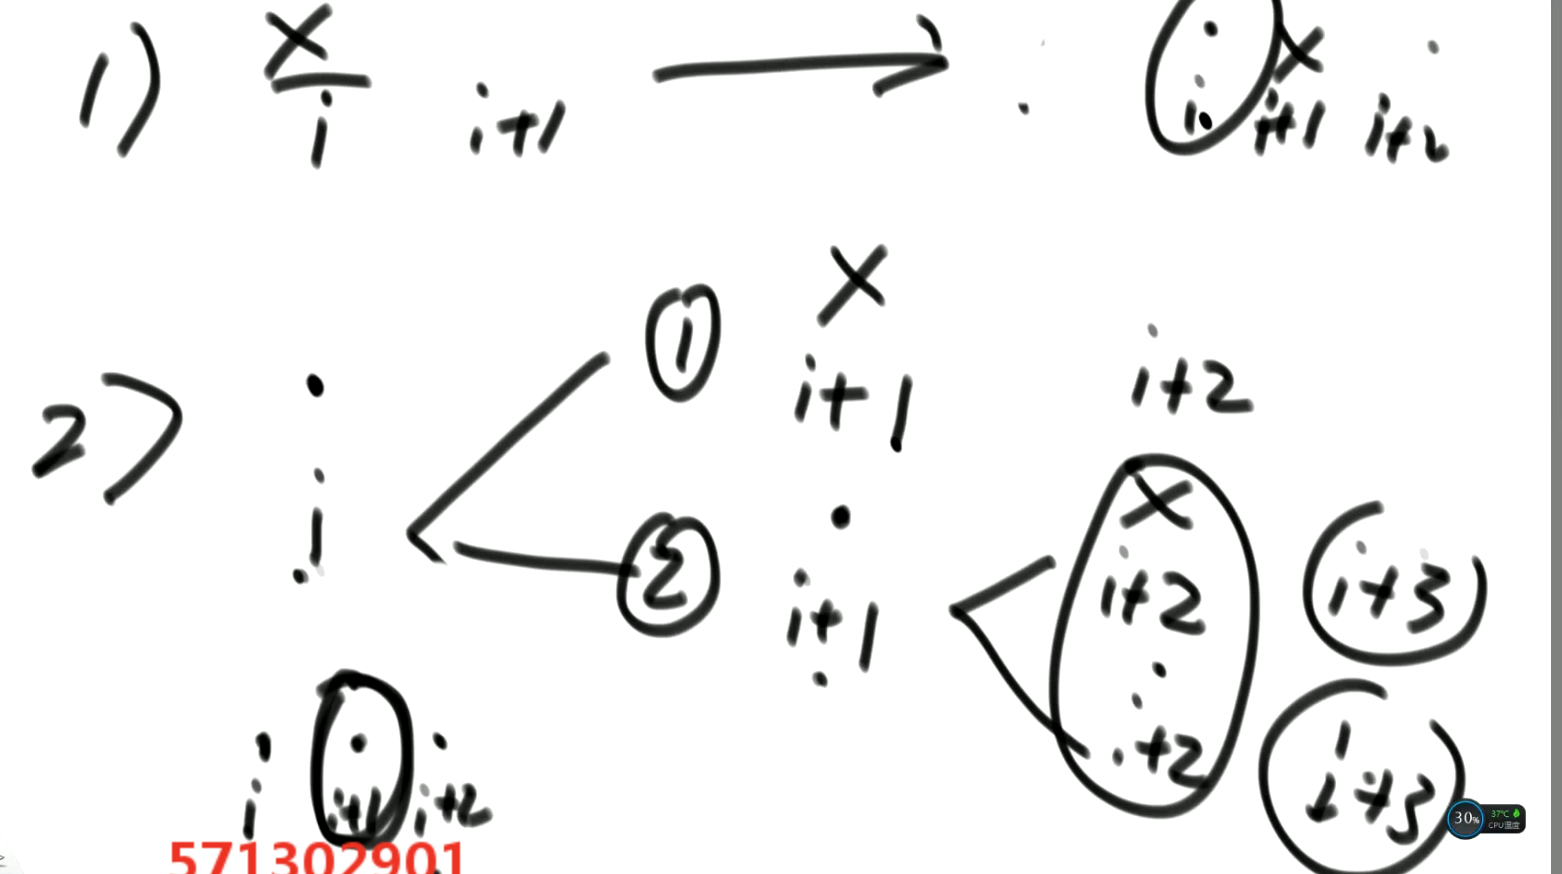 1) x i i+1 → i x i+1 i+2
① x i+1 i+2
2) i
② i+1 x i+2 i+3
i+2 i+3
i i+1 i+2
571302901
30% 37℃ CPU温度